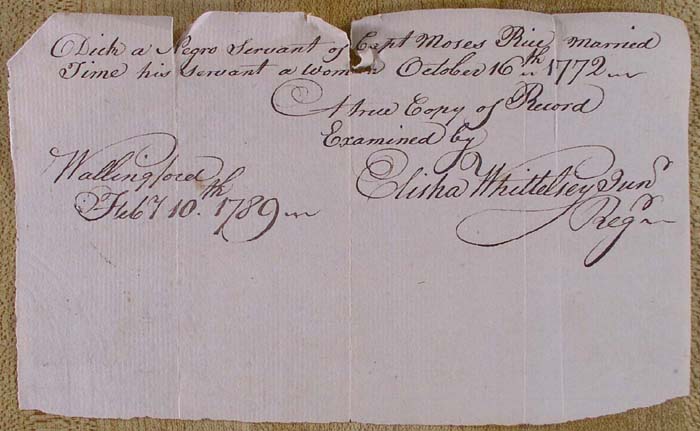 Dick a Negro Servant of Capt Moses Rice Married
Time his servant a woman October 16th 1772
A true Copy of Record
Examined by
Wallingford
Feby 10.th 1789
Elisha Whittelsey Junr
Regr